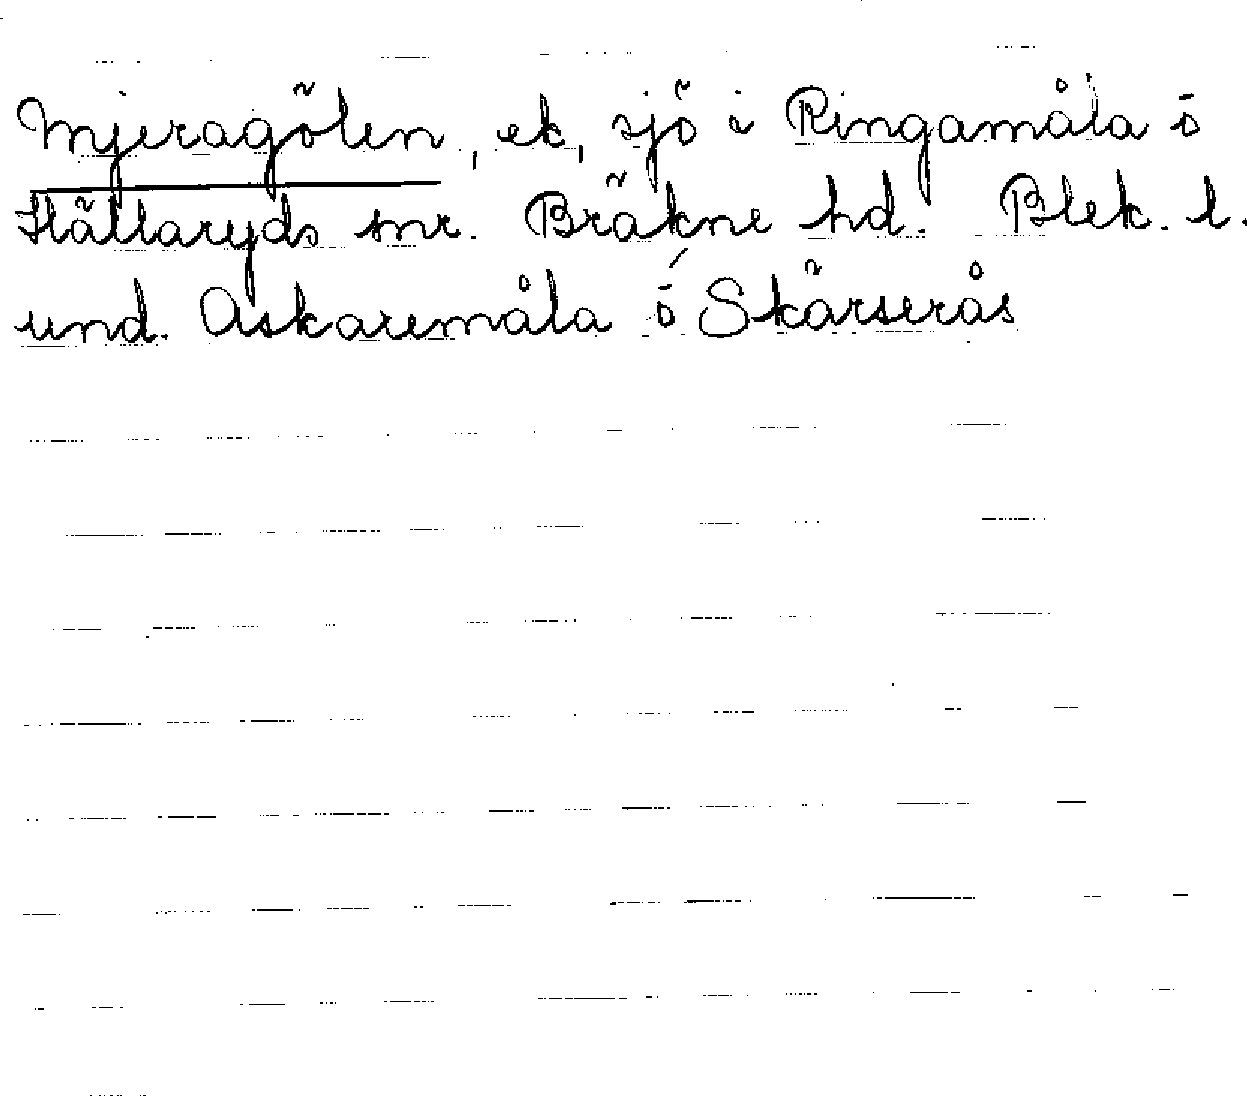 Mjeragölen, ek, sjö i Ringamåla ö
Hällaryds snr. Bräkne hd. Blek. l.
und. Askaremåla ö Skärserås